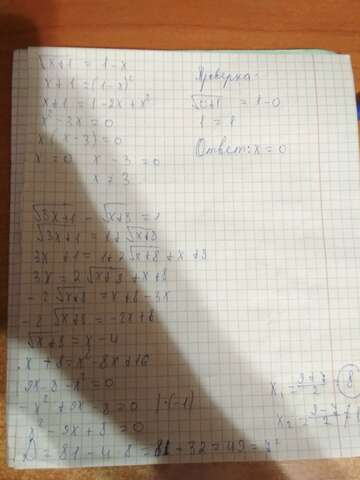 √x+1 = 1-x
x+1 = (1-x)²
x+1 = 1-2x+x²
x²-3x=0
x(x-3)=0
x=0 x-3=0
x=3
Проверка:
√0+1 = 1-0
1 = 1
Ответ: x=0
√3x+1 - √x+8 = 1
√3x+1 = 1+√x+8
3x+1 = 1+2√x+8+x+8
3x = 2√x+8+x+8
-2√x+8 = x+8-3x
-2√x+8 = -2x+8
√x+8 = x-4
x+8 = x²-8x+16
9x-8-x²=0
-x²+9x-8=0 |·(-1)
x²-9x+8=0
D = 81-4·8 = 81-32 = 49 = 7²
x₁ = 9+7/2 = 8
x₂ = 9-7/2